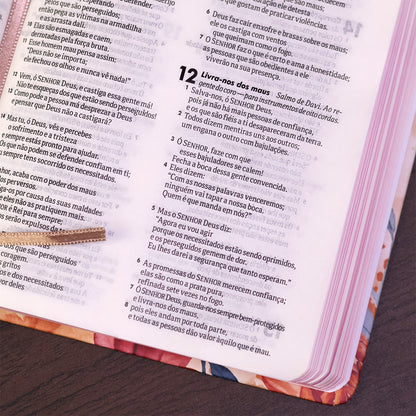 que são perseguidos;
e pega as vítimas na armadilha
e as arrasta dali.
10 Elas são esmagadas e caem,
derrotadas pela força bruta.
11 Esse homem mau pensa assim:
"Deus não se importa;
ele fechou os olhos e nunca vê nada!"
12 Vem, ó SENHOR Deus, e castiga essa gente má!
Não te esqueças dos que estão sendo perseguidos!
13 Como pode a pessoa má desprezar a Deus
e pensar que Deus não a castigará?
14 Mas tu, ó Deus, vês e percebes
o sofrimento e a tristeza
e sempre estás pronto para ajudar.
Os que não podem se defender confiam em ti;
e sempre tens socorrido os necessitados.
SENHOR, acaba com o poder dos maus
perversos.
por causa das suas maldades
eles não as pratiquem mais.
Rei para sempre.
serão expulsos da
que são perseguidos
os e dos necessitados
que gostam de praticar violências.
6 Deus faz cair enxofre e brasas sobre os maus;
ele os castiga com ventos
que queimam como o fogo.
7 O SENHOR faz o que é certo e ama a honestidade;
as pessoas que são obedientes a ele
viverão na sua presença.
12 Livra-nos dos maus Salmo de Davi. Ao re-
gente do coro — para instrumentos de oito cordas.
1 Salva-nos, ó SENHOR Deus,
pois já não há mais pessoas de confiança,
e os que são fiéis a ti desapareceram da terra.
2 Todos dizem mentiras uns aos outros;
um engana o outro com bajulações.
3 Ó SENHOR, faze com que
esses bajuladores se calem!
Fecha a boca dessa gente convencida.
4 Eles dizem:
"Com as nossas palavras venceremos;
ninguém vai tapar a nossa boca.
Quem é que manda em nós?"
5 Mas o SENHOR Deus diz:
"Agora eu vou agir
porque os necessitados estão sendo oprimidos,
e os perseguidos gemem de dor.
Eu lhes darei a segurança que tanto esperam."
6 As promessas do SENHOR merecem confiança;
elas são como a prata pura,
refinada sete vezes no fogo.
7 Ó SENHOR Deus, guarda-nos sempre bem-protegidos
e livra-nos dos maus,
8 pois eles andam por toda parte,
e todas as pessoas dão valor àquilo que é mau.